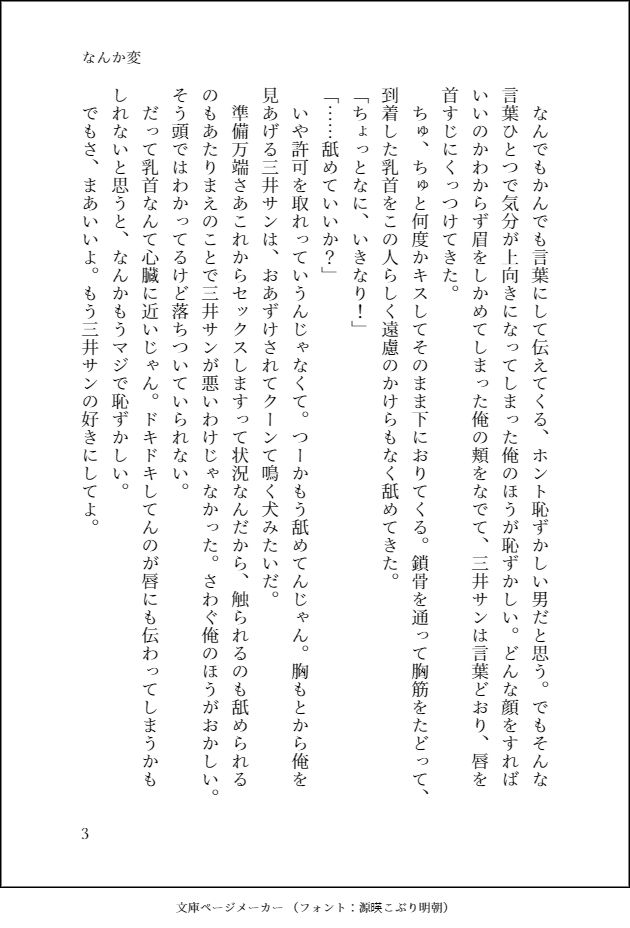 なんか変
　なんでもかんでも言葉にして伝えてくる、ホント恥ずかしい男だと思う。でもそんな
言葉ひとつで気分が上向きになってしまった俺のほうが恥ずかしい。どんな顔をすれば
いいのかわからず眉をしかめてしまった俺の頬をなでて、三井サンは言葉どおり、唇を
首すじにくっつけてきた。
　ちゅ、ちゅと何度かキスしてそのまま下におりてくる。鎖骨を通って胸筋をたどって、
到着した乳首をこの人らしく遠慮のかけらもなく舐めてきた。
「ちょっとなに、いきなり！」
「……舐めていいか？」
　いや許可を取れっていうんじゃなくて。つーかもう舐めてんじゃん。胸もとから俺を
見あげる三井サンは、おあずけされてクーンて鳴く犬みたいだ。
　準備万端さあこれからセックスしますって状況なんだから、触られるのも舐められる
のもあたりまえのことで三井サンが悪いわけじゃなかった。さわぐ俺のほうがおかしい。
そう頭ではわかってるけど落ちついていられない。
　だって乳首なんて心臓に近いじゃん。ドキドキしてんのが唇にも伝わってしまうかも
しれないと思うと、なんかもうマジで恥ずかしい。
　でもさ、まあいいよ。もう三井サンの好きにしてよ。
3
文庫ページメーカー（フォント：源暎こぶり明朝）